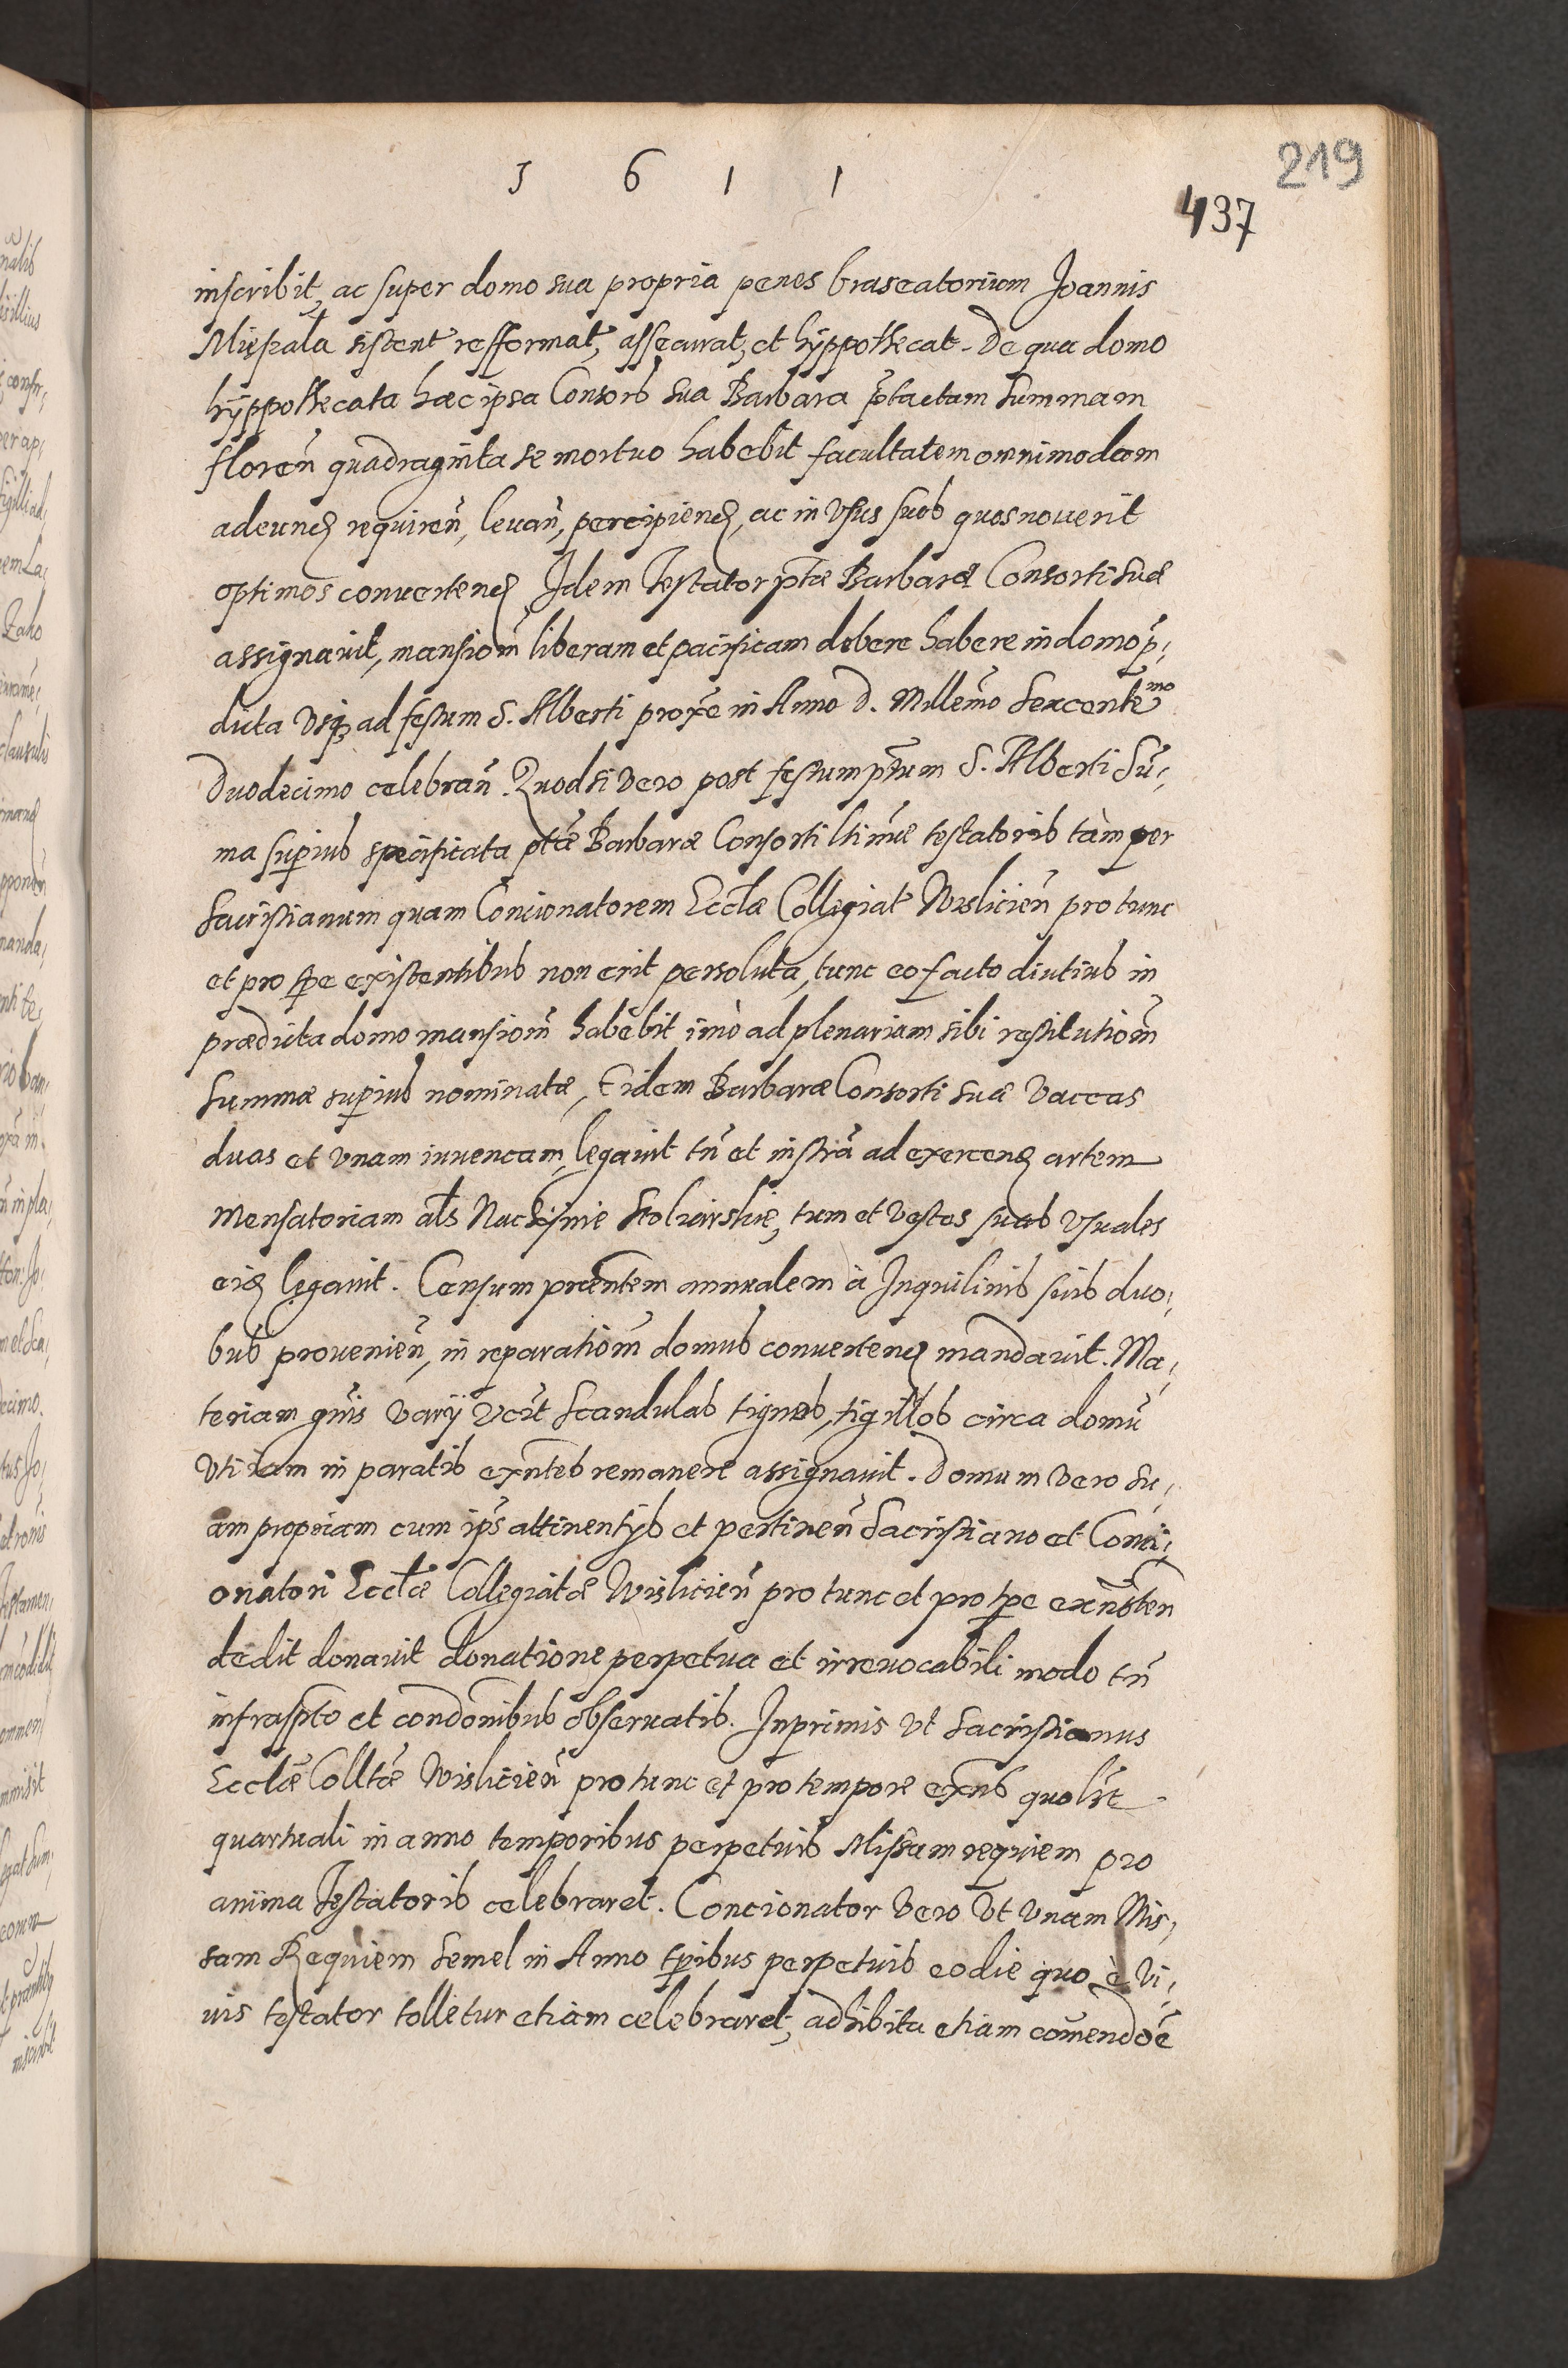 1 6 1 1
219
437
inscribit, ac super domo sua propria penes braseatorium Joannis
Miępala sistent refformat, assecurat, et hÿppothecat. De qua domo
hÿppothecata haec ipsa Consors sua Barbara p̃tactam summam
floreñ quadraginta se mortuo habebit facultatem omnimodam
adeund requireñ, levañ, percipiend, ac in usus suos quos noverit
optimos convertend Idem Testator ptæ Barbaræ Consorti suæ
assignavit, mansiom̃ liberam et pacificam debere habere in domo p̃,
dicta usq; ad festum S. Alberti proxẽ in Anno D. Millemõ Sexcentẽmo
duodecimo celebrañ. Quod si vero post festum ptum S. Alberti Sũ,
ma superius specificata ptæ Barbaræ Consorti ltimæ testatoris tàm per
Sacristianum quam Concionatorem Ecclæ Collegiat Wisliciẽn pro tunc
et pro tpe existentibus non erit persoluta, tunc eo facto diutius in
prædicta domo mansiom̃ habebit imò ad plenariam sibi restitutiom̃
summæ superius nominatæ, Eidem Barbaræ Consorti suæ vaccas
duas et unam iuvencam, legavit tñ et instrã ad exercend artem
Mensatoriam als Naczÿnie Stolarskie, tum et vestes suas usuales
eid legavit. Censum præntem annualem à Inquilinis suis duo,
bus provenieñ, in reparatiom̃ domus convertend mandavit. Ma,
teriam gñis varÿ vcit scandulas tignos, tigillos circa domũ
uti iam in paratis exñtes remanere assignavit. Domum vero su,
am propriam cum ips̃ attinentÿs et pertineñ Sacristiano et Conci,
onatori Ecclæ Collegiatæ Wisliciẽn pro tunc et pro tpe exñsteñ
dedit donavit donatione perpetua et irrevocabili modo tñ
infrasspto et condonibus observatis. Inprimis ut Sacristianus
Ecclæ Colltæ Wisliciẽn pro tunc et pro tempore exñs quolit
quartuali in anno temporibus perpetuis Missam requiem pro
anima Testatoris celebraret. Concionator vero ut unam Mis,
sam Requiem semel in Anno tpribus perpetuis eo die quo è vi,
vis testator tolletur etiam celebraret, adhibita etiam comendoẽ